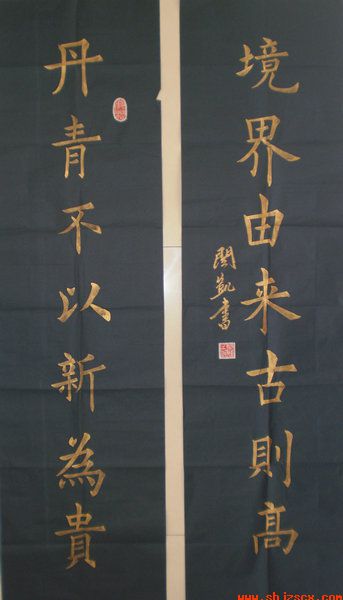 丹青不以新為貴
境界由来古則高
閔凱書
www.shjzscx.co